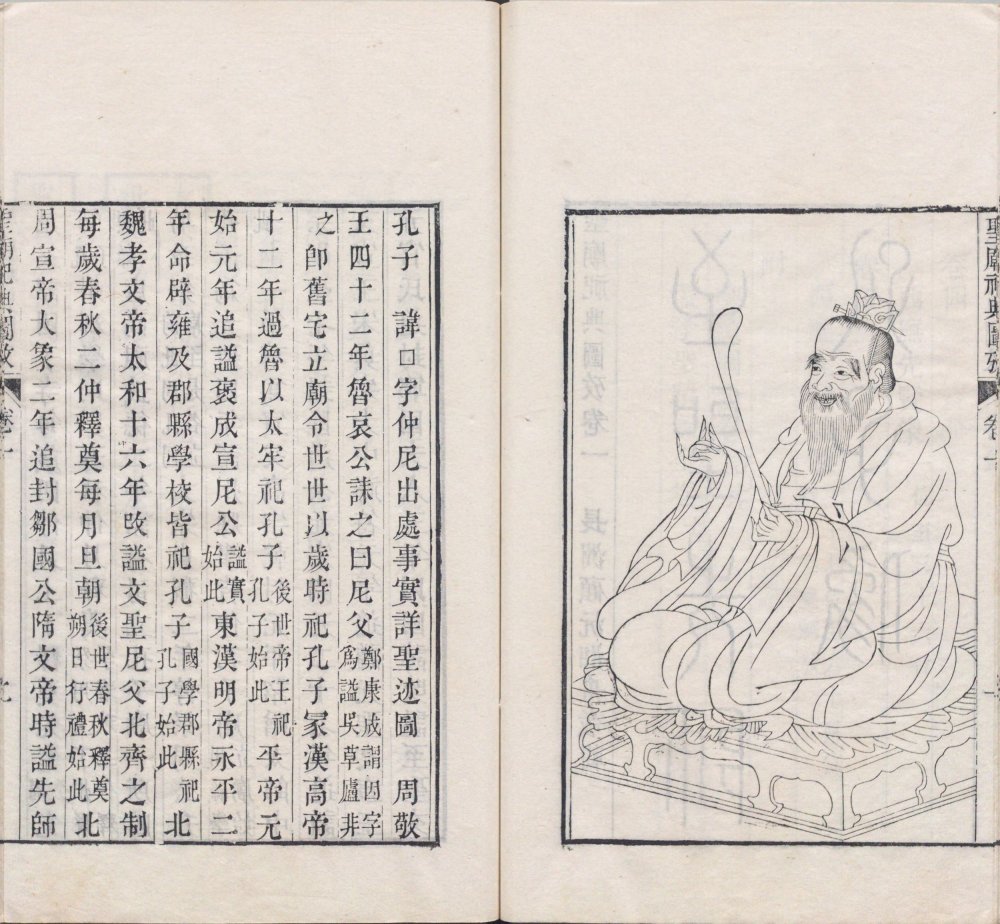 聖廟祀典圖攷 卷一
孔子諱口字仲尼出處事實詳聖迹圖 周敬
王四十二年魯哀公誄之曰尼父鄭康成謂因字爲謚吳草廬非
之卽舊宅立廟令世世以歲時祀孔子冢漢高帝
十二年過魯以太牢祀孔子後世帝王祀孔子始此平帝元
始元年追謚褒成宣尼公謚實始此東漢明帝永平二
年命辟雍及郡縣學校皆祀孔子國學郡縣祀孔子始此北
魏孝文帝太和十六年攺謚文聖尼父北齊之制
每歲春秋二仲釋奠每月旦朝後世春秋釋奠朔日行禮始此北
周宣帝大象二年追封鄒國公隋文帝時謚先師
聖廟祀典圖攷 卷一